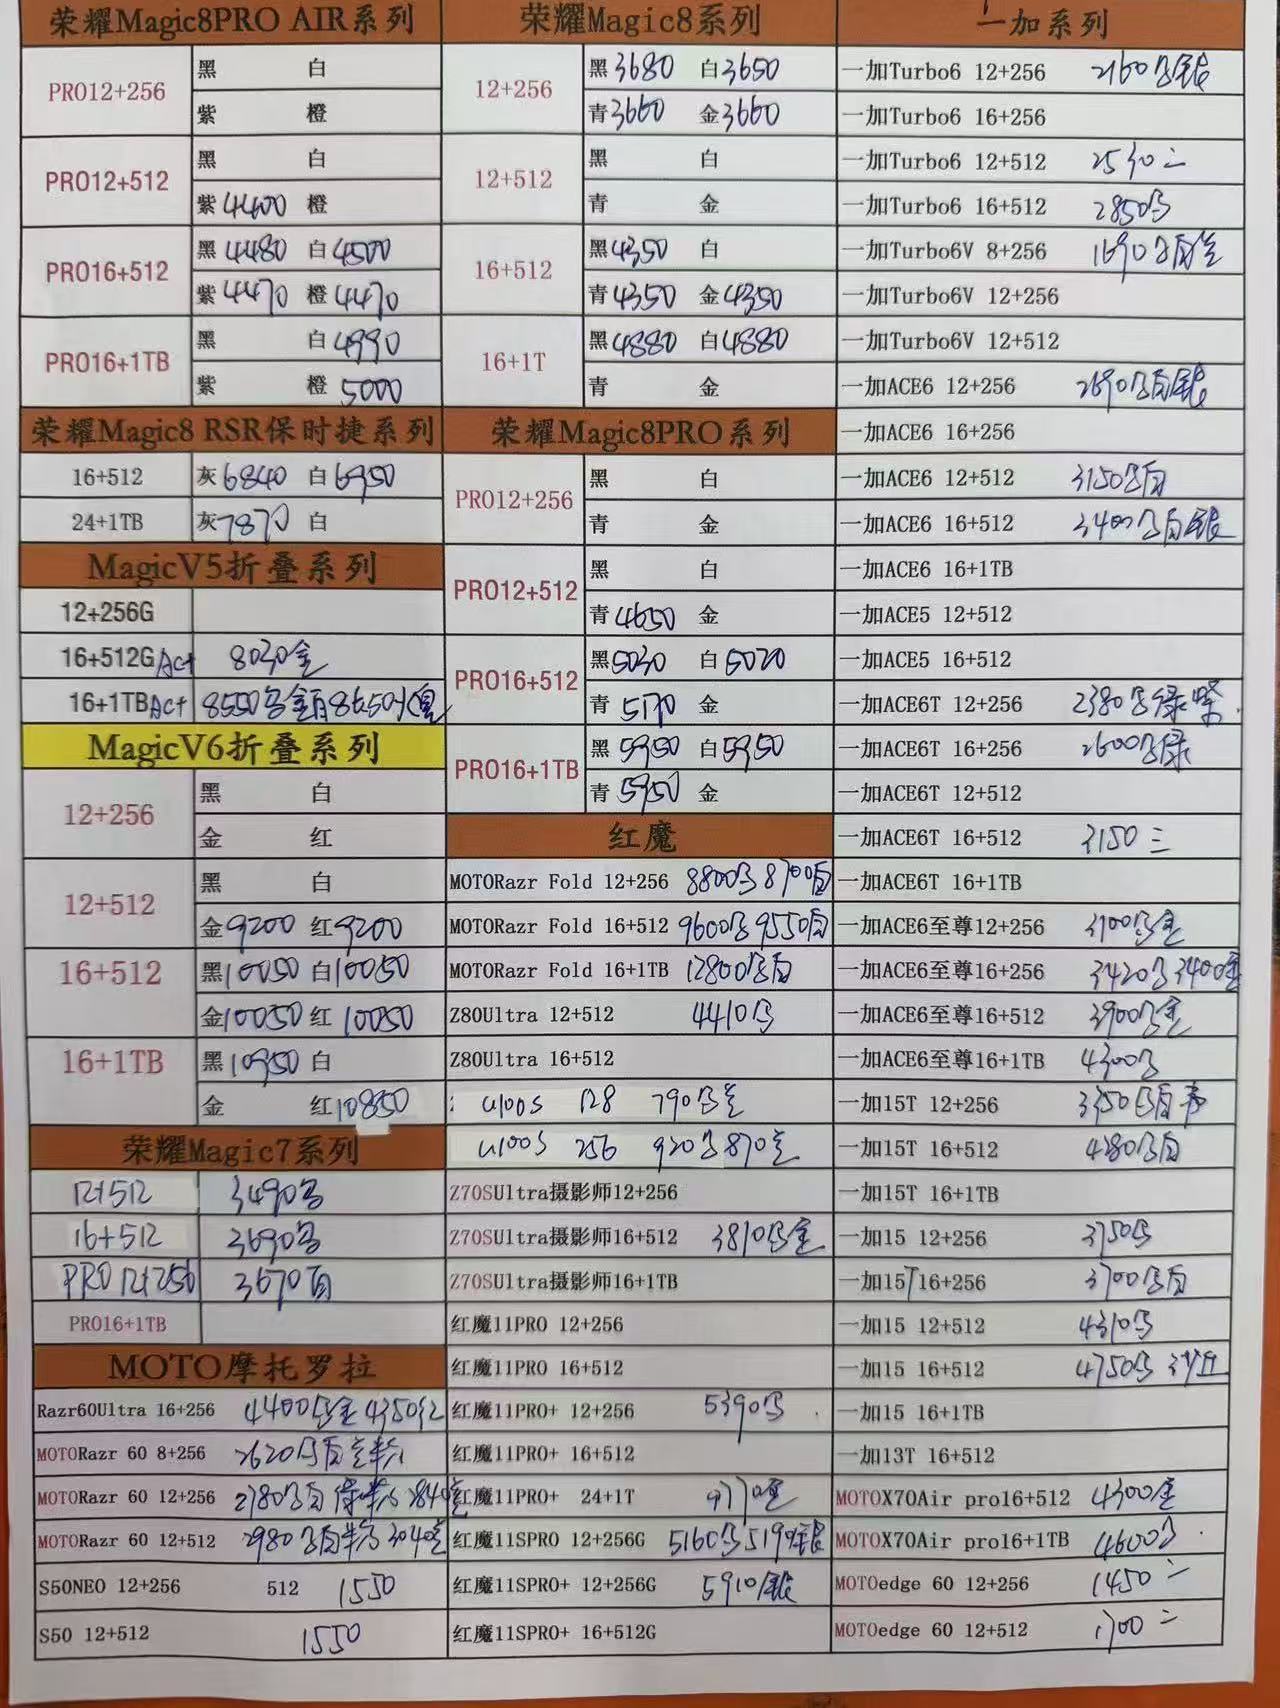 荣耀Magic8PRO AIR系列
PRO12+256
黑 白
紫 橙
PRO12+512
黑 白
紫4400 橙
PRO16+512
黑4480 白4500
紫4470 橙4470
PRO16+1TB
黑 白4990
紫 橙5000
荣耀Magic8 RSR保时捷系列
16+512 灰6840 白6950
24+1TB 灰7870 白
MagicV5折叠系列
12+256G
16+512G Act 8030金
16+1TB Act 8550 8650
MagicV6折叠系列
12+256
黑 白
金 红
12+512
黑 白
金9200 红9200
16+512
黑10050 白10050
金10050 红10050
16+1TB
黑10950 白
金 红10850
荣耀Magic7系列
12+512 3490
16+512 3690
PRO 12+256 3670白
PRO16+1TB
MOTO摩托罗拉
Razr60Ultra 16+256 4400 4350红
MOTORazr 60 8+256 2620
MOTORazr 60 12+256 2780
MOTORazr 60 12+512 2980 3040
S50NEO 12+256 512 1550
S50 12+512 1550
荣耀Magic8系列
12+256
黑3680 白3650
青3660 金3660
12+512
黑 白
青 金
16+512
黑4350 白
青4350 金4350
16+1T
黑4880 白4880
青 金
荣耀Magic8PRO系列
PRO12+256
黑 白
青 金
PRO12+512
黑 白
青4650 金
PRO16+512
黑5030 白5020
青5170 金
PRO16+1TB
黑5950 白5950
青5950 金
红魔
MOTORazr Fold 12+256 8800 8700白
MOTORazr Fold 16+512 9600 9550白
MOTORazr Fold 16+1TB 12800
Z80Ultra 12+512 4410
Z80Ultra 16+512
u100s 128 790
u100s 256 920 870
Z70SUltra摄影师12+256
Z70SUltra摄影师16+512 3810
Z70SUltra摄影师16+1TB
红魔11PRO 12+256
红魔11PRO 16+512
红魔11PRO+ 12+256 5390
红魔11PRO+ 16+512
红魔11PRO+ 24+1T
红魔11SPRO 12+256G 5160 5190银
红魔11SPRO+ 12+256G 5910银
红魔11SPRO+ 16+512G
一加系列
一加Turbo6 12+256 2160
一加Turbo6 16+256
一加Turbo6 12+512 2530二
一加Turbo6 16+512 2850
一加Turbo6V 8+256 1690
一加Turbo6V 12+256
一加Turbo6V 12+512
一加ACE6 12+256 2690
一加ACE6 16+256
一加ACE6 12+512 3150
一加ACE6 16+512 3400
一加ACE6 16+1TB
一加ACE5 12+512
一加ACE5 16+512
一加ACE6T 12+256 2380
一加ACE6T 16+256 2600
一加ACE6T 12+512
一加ACE6T 16+512 3150三
一加ACE6T 16+1TB
一加ACE6至尊12+256 3100
一加ACE6至尊16+256 3420 3400
一加ACE6至尊16+512 3900
一加ACE6至尊16+1TB 4300
一加15T 12+256
一加15T 16+512 4280
一加15T 16+1TB
一加15 12+256 3750
一加15T16+256 3700
一加15 12+512 4310
一加15 16+512 4750
一加15 16+1TB
一加13T 16+512
MOTOX70Air pro16+512 4300
MOTOX70Air pro16+1TB 4600
MOTOedge 60 12+256 1450二
MOTOedge 60 12+512 1700二